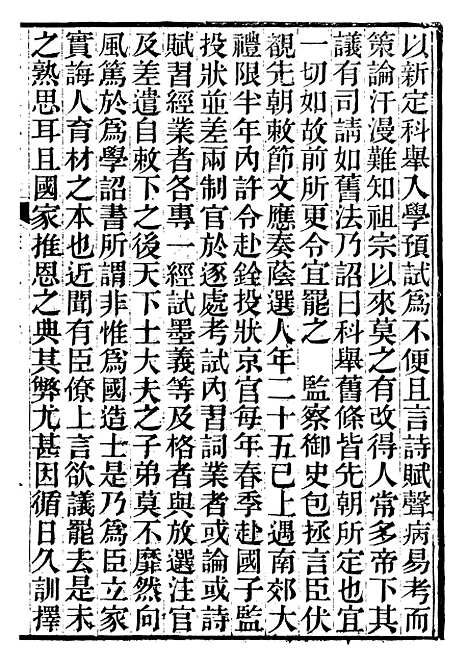 以新定科舉入學預試爲不便且言詩賦聲病易考而
策論汗漫難知祖宗以來莫之有改得人常多帝下其
議有司請如舊法乃詔曰科舉舊條皆先朝所定也宜
一切如故前所更令宜罷之　監察御史包拯言臣伏
觀先朝敕節文應奏蔭選人年二十五已上遇南郊大
禮限半年內許令赴銓投狀京官每年春季赴國子監
投狀並差兩制官於逐處考試內習詞業者或論或詩
賦習經業者各專一經試墨義等及格者與放選注官
及差遣自敕下之後天下士大夫之子弟莫不靡然向
風篤於爲學詔書所謂非惟爲國造士是乃爲臣立家
實誨人育材之本也近聞有臣僚上言欲議罷去是未
之熟思耳且國家推恩之典其弊尤甚因循日久訓擇